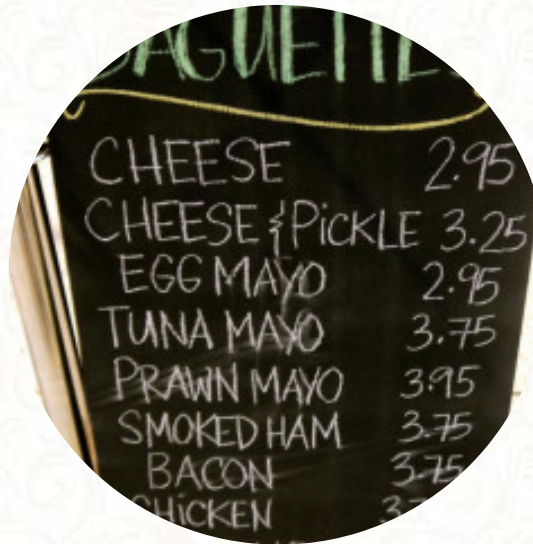 BAGUETTES
CHEESE 2.95
CHEESE & PiCKLE 3.25
EGG MAYO 2.95
TUNA MAYO 3.75
PRAWN MAYO 3.95
SMOKED HAM 3.75
BACON 3.75
CHiCKEN